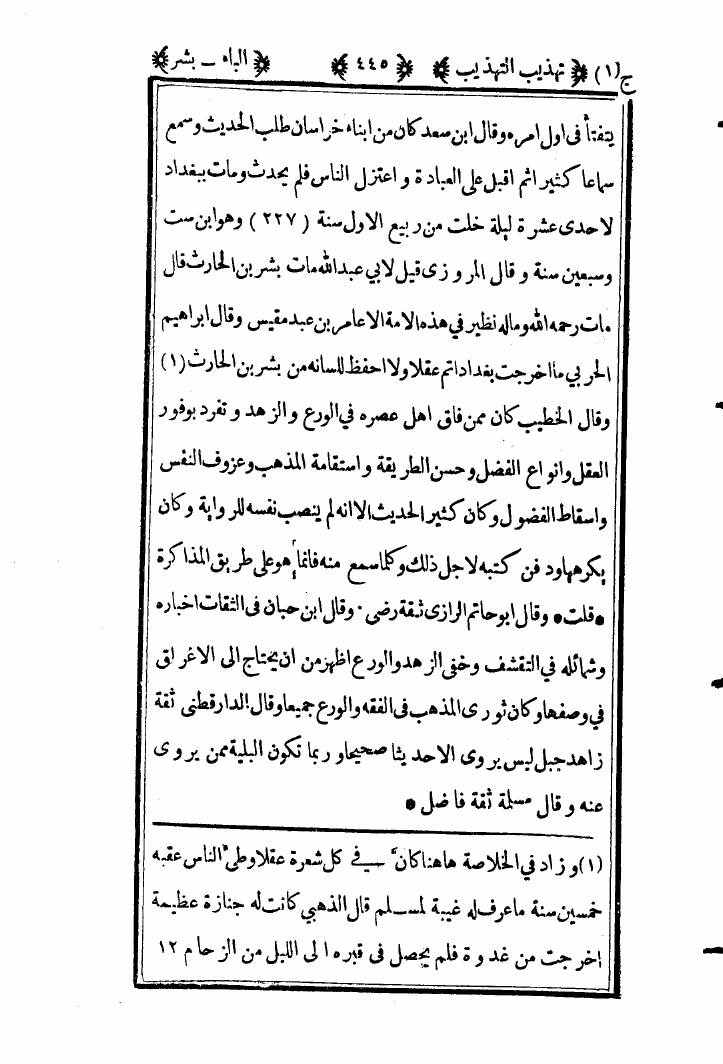 ج (١) ﴿ تهذيب التهذيب ﴾ ﴿ ٤٤٥ ﴾ ﴿ الباء ـ بشر ﴾
يتفتأ فى اول امره وقال ابن سعد كان من ابناء خراسان طلب الحديث وسمع
سماعا كثيرا ثم اقبل على العبادة و اعتزل الناس فلم يحدث ومات ببغداد
لاحدى عشرة ليلة خلت من ربيع الاول سنة ( ٢٢٧ ) وهو ابن ست
وسبعين سنة و قال المروزى قيل لابي عبد الله مات بشر بن الحارث قال
مات رحمه الله وماله نظير في هذه الامة الا عامر بن عبد مقيس وقال ابراهيم
الحربي ما اخرجت بغداد اتم عقلا ولا احفظ للسانه من بشر بن الحارث (١)
وقال الخطيب كان ممن فاق اهل عصره في الورع والزهد و تفرد بوفور
العقل وانواع الفضل وحسن الطريقة و استقامة المذهب وعزوف النفس
واسقاط الفضول وكان كثير الحديث الا انه لم ينصب نفسه للرواية وكان
يكرهها ود فن كتبه لاجل ذلك وكلما سمع منه فانما هو على طريق المذاكرة
* قلت * وقال ابو حاتم الرازى ثقة رضى . وقال ابن حبان فى الثقات اخباره
وشمائله في التقشف وخفى الزهد والورع اظهر من ان يحتاج الى الاغراق
في وصفها وكان ثورى المذهب فى الفقه والورع جميعا وقال الدارقطنى ثقة
زاهد جبل ليس يروى الا حديثا صحيحا و ربما تكون البلية ممن يروى
عنه و قال مسلمة ثقة فاضل *
(١) و زاد في الخلاصة هاهنا كان في كل شعرة عقلا وطئ الناس عقبه
خمسين سنة ما عرف له غيبة لمسلم قال الذهبي كانت له جنازة عظيمة
اخرجت من غدوة فلم يحصل فى قبره الى الليل من الزحام ١٢